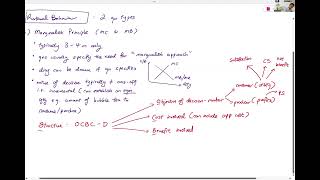 Rational Behaviour - 2 qn types
) Marginalist Principle (MC & MB)
• typically 8-10m only
• qns usually specify the need for "marginalist approach"
• diag can be drawn if qn specifies
• nature of decision typically is one-off
i.e. incremental (can establish an
qty e.g. amount of bubble tea to
consume / produce)
Structure - OCBC - D
MC
MB
satisfaction
CS
net benefit
consumer (utility)
producer (profits)
Objective of decision-maker
Cost involved (can include opp cost)
Benefit involved